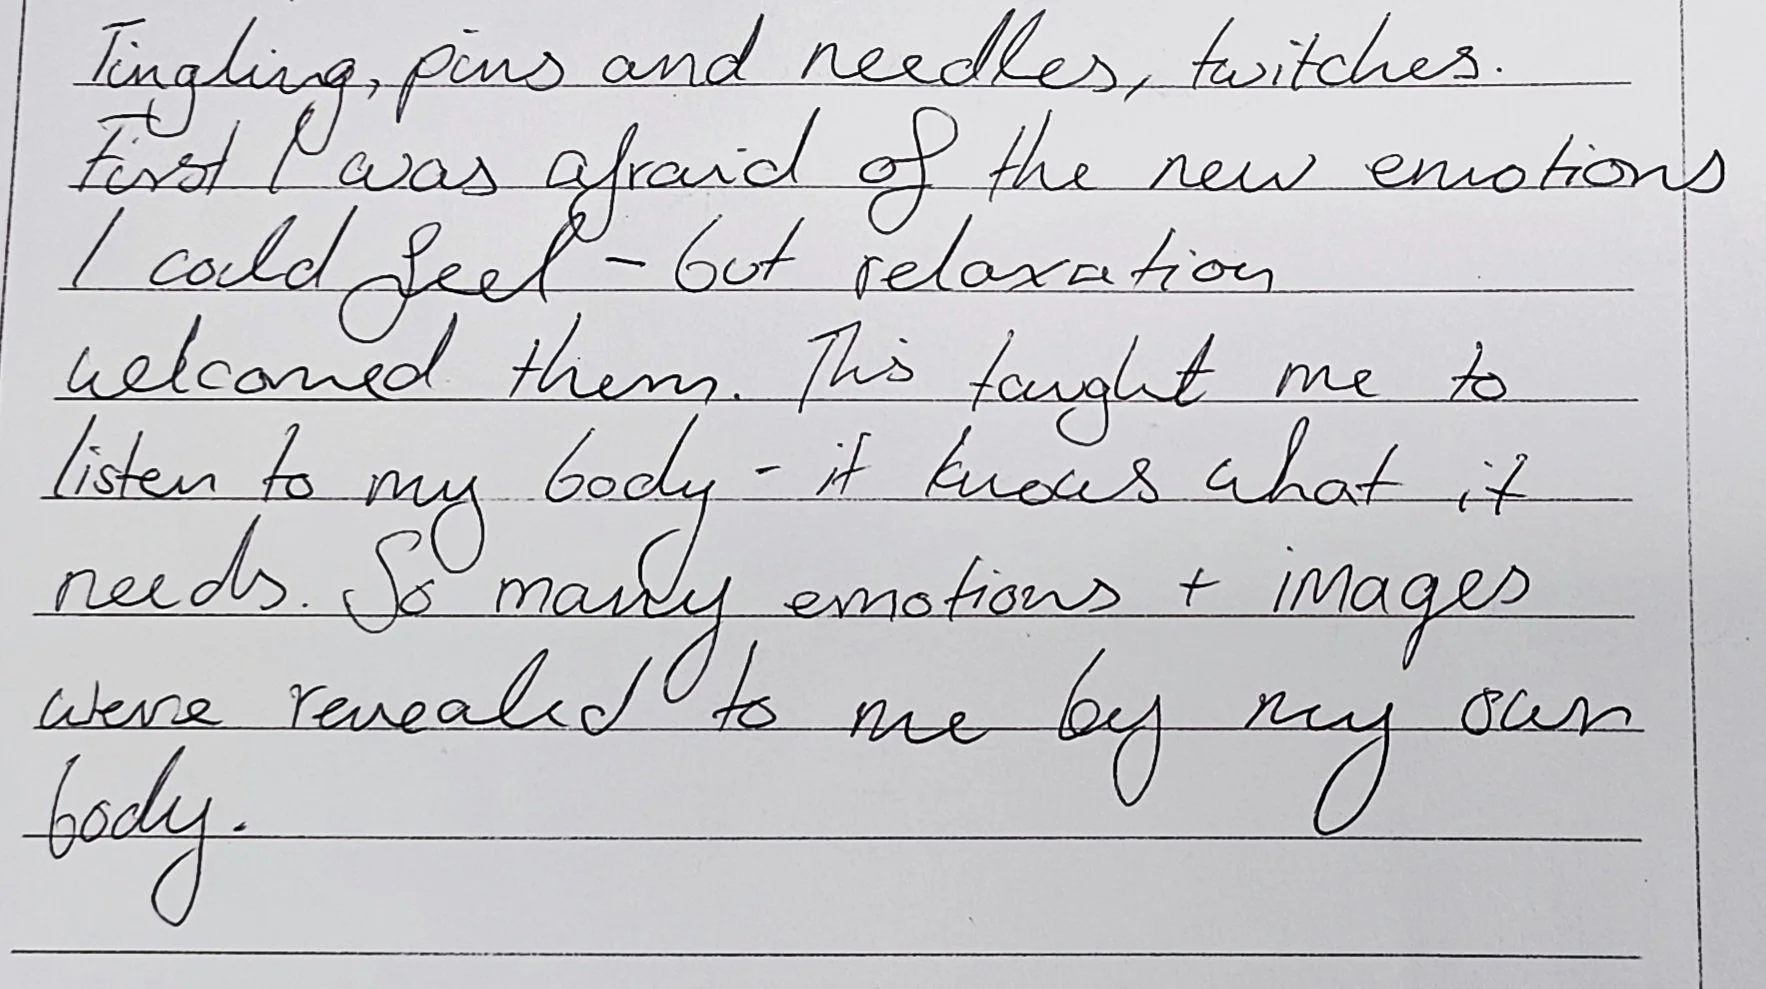 Tingling, pins and needles, twitches.
First I was afraid of the new emotions
I could feel - but relaxation
welcomed them. This taught me to
listen to my body - it knows what it
needs. So many emotions + images
were revealed to me by my own
body.